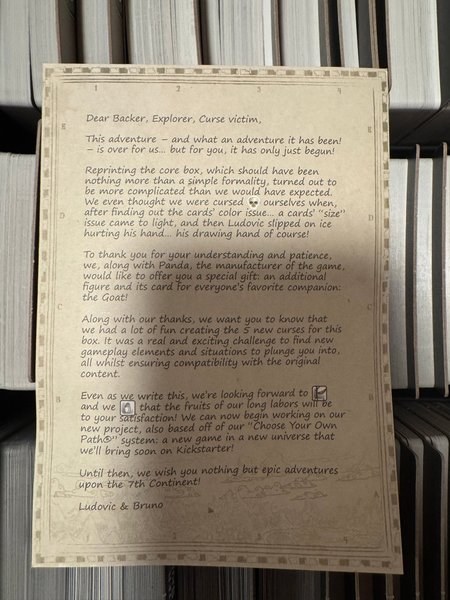 1 2 3 4
Dear Backer, Explorer, Curse victim,
This adventure – and what an adventure it has been!
– is over for us... but for you, it has only just begun!
Reprinting the core box, which should have been
nothing more than a simple formality, turned out to
be more complicated than we would have expected.
We even thought we were cursed ourselves when,
after finding out the cards' color issue... a cards' "size"
issue came to light, and then Ludovic slipped on ice
hurting his hand... his drawing hand of course!
To thank you for your understanding and patience,
we, along with Panda, the manufacturer of the game,
would like to offer you a special gift: an additional
figure and its card for everyone's favorite companion:
the Goat!
Along with our thanks, we want you to know that
we had a lot of fun creating the 5 new curses for this
box. It was a real and exciting challenge to find new
gameplay elements and situations to plunge you into,
all whilst ensuring compatibility with the original
content.
Even as we write this, we're looking forward to
and we that the fruits of our long labors will be
to your satisfaction! We can now begin working on our
new project, also based off of our "Choose Your Own
Path®" system: a new game in a new universe that
we'll bring soon on Kickstarter!
Until then, we wish you nothing but epic adventures
upon the 7th Continent!
Ludovic & Bruno